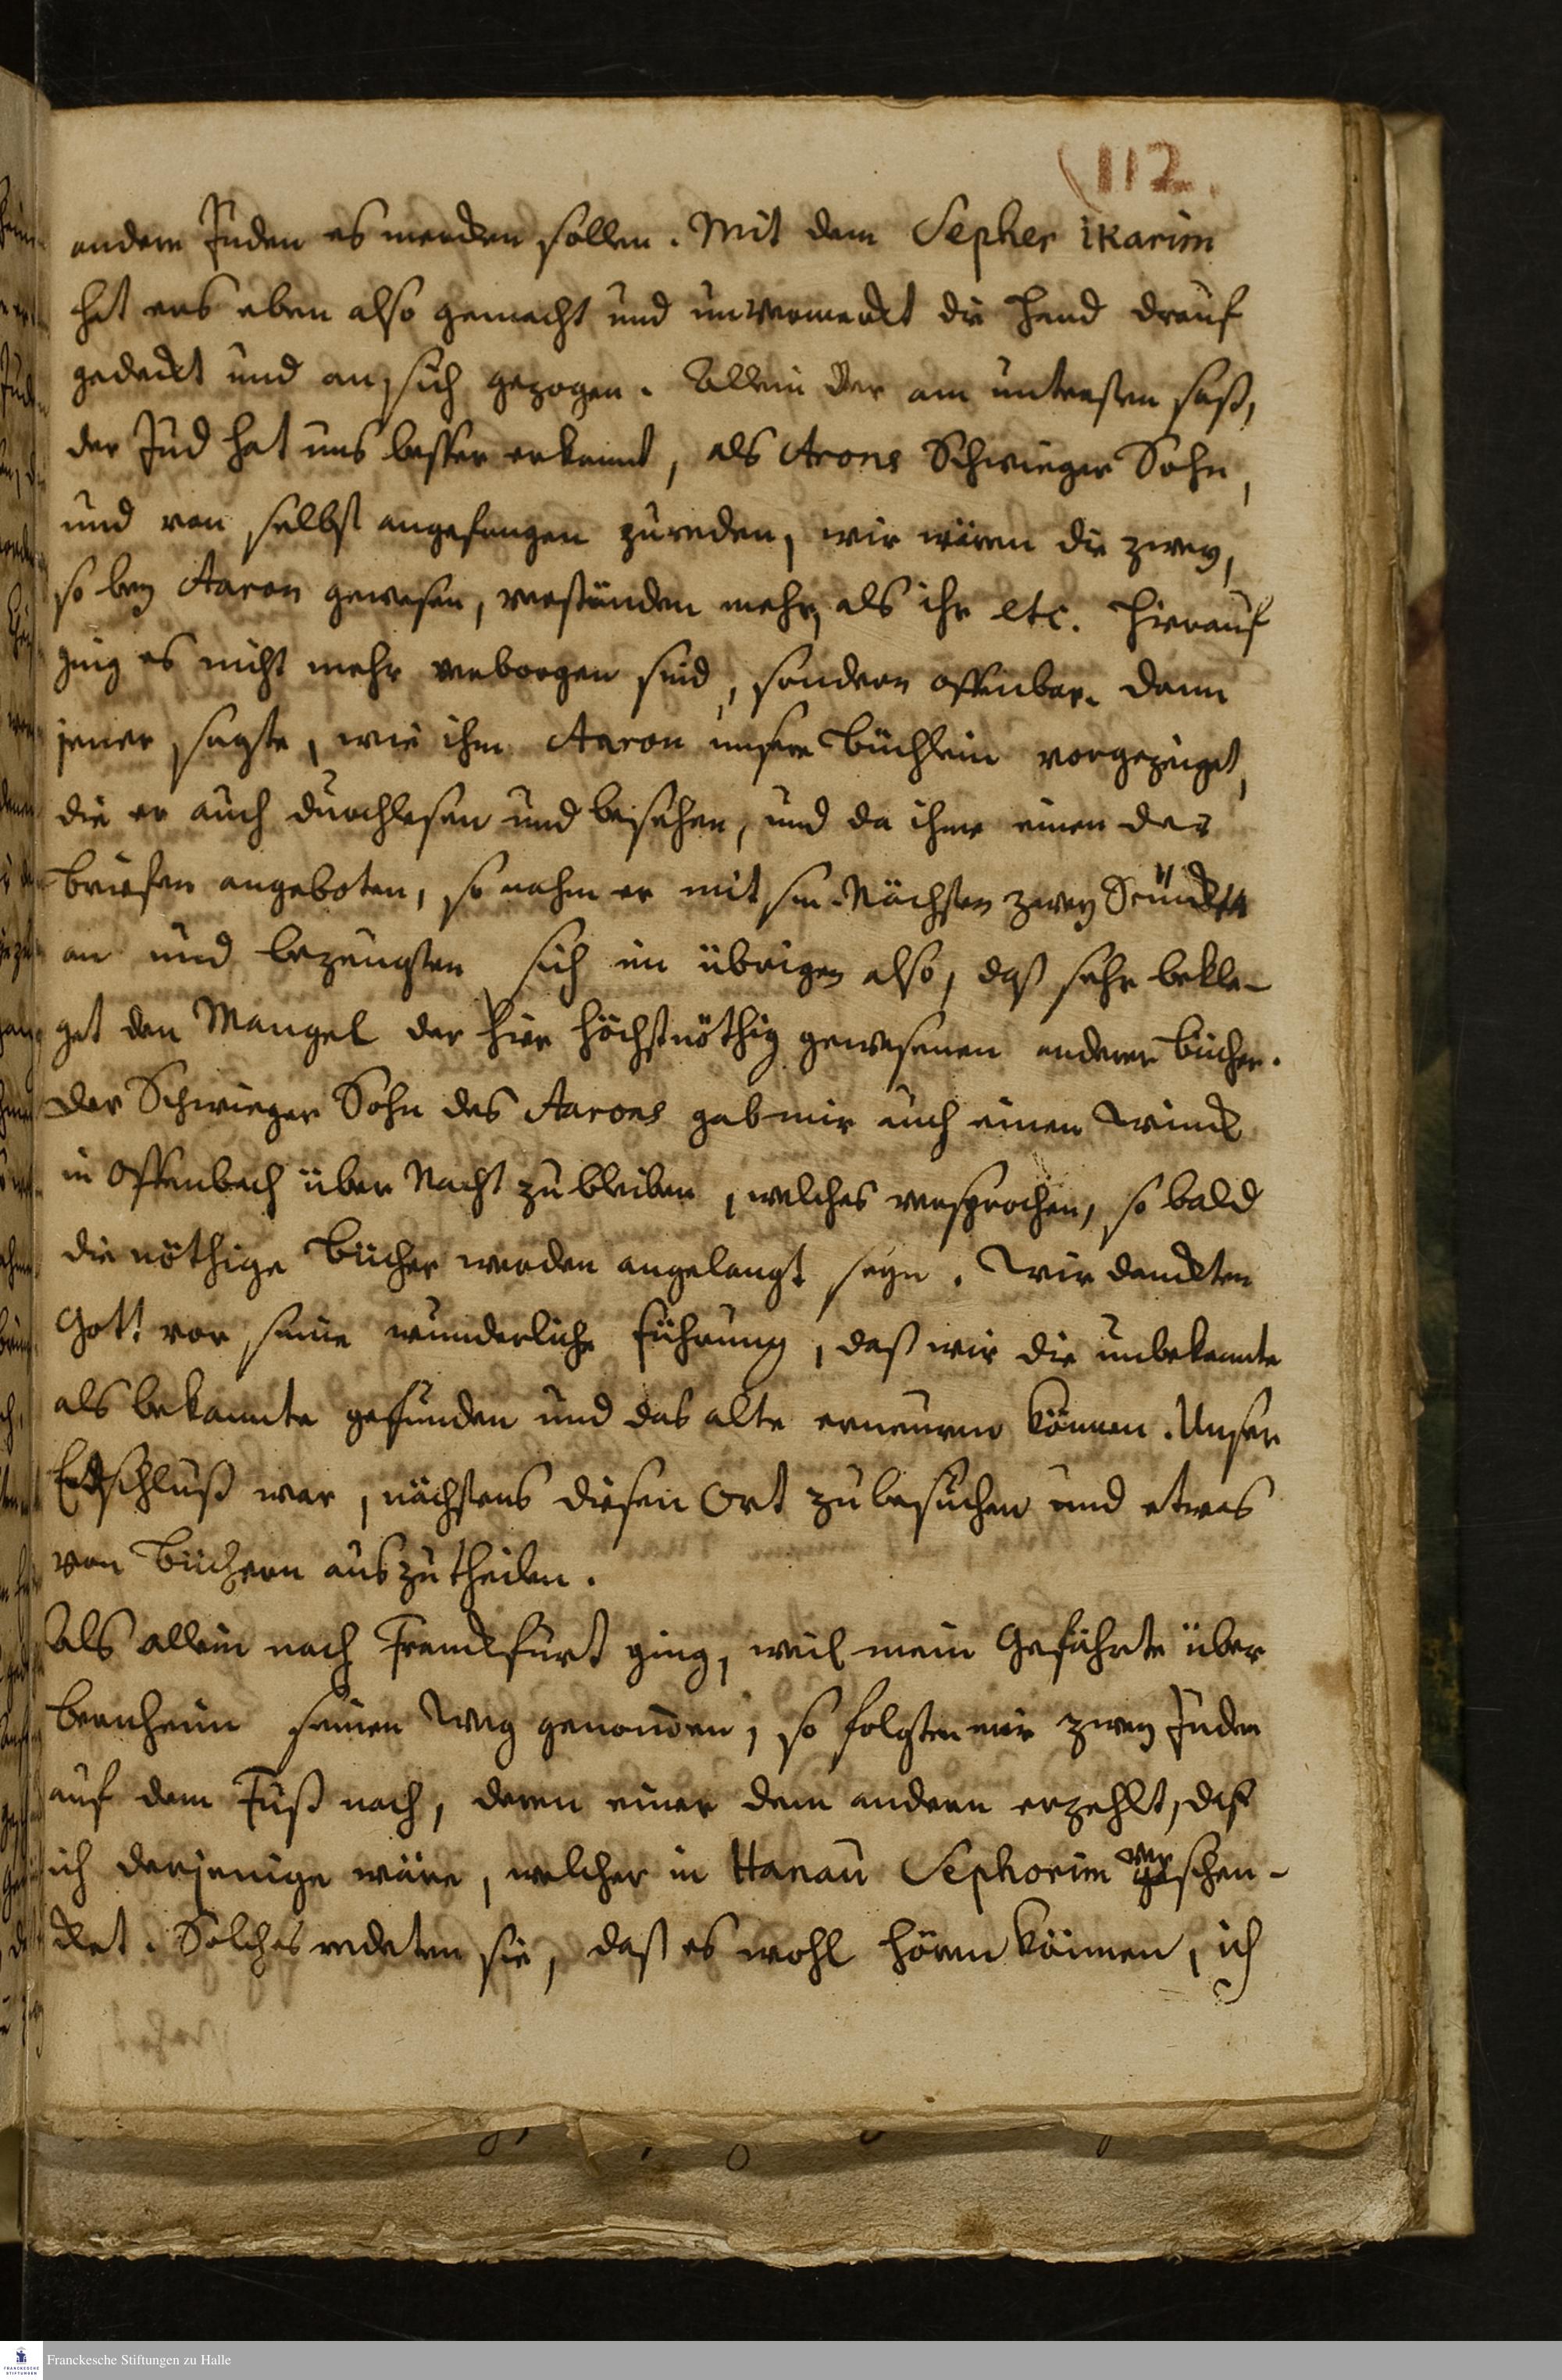 (112.
andern Juden es mercken sollen. Mit dem Sepher ikarim
hat ers eben also gemacht und unvermerckt die Hand drauf
gedeckt und an sich gezogen. Allein der am untersten saß,
der Jud hat uns besser erkannt, als Arons Schwieger Sohn,
und von selbst angefangen zureden, wir wären die zwey,
so bey Aaron gewesen, verstünden mehr, als ihr etc. Hierauf
ging es nicht mehr verborgen, sondern offenbar. Dann
jener sagte, wie ihm Aaron unsere Büchlein vorgezeiget,
die er auch durchlesen und besehen, und da ihme einen der
briefen angeboten, so nahm er mit Nächsten zwey
an und bezeugten sich im übrigen also, daß sehr bekla-
get den Mangel der hier höchstnöthig gewesenen anderer Bücher.
Der Schwieger Sohn des Aarons gab mir auch einen Winck
in Offenbach über Nacht zu bleiben, welches versprochen, so bald
die nöthige Bücher werden angelangt seyn. Wir danckten
Gott vor seine wunderliche Führung, daß wir die unbekannte
als bekannte gefunden und das alte erneuren können. Unser
Entschluß war, nächstens diesen Ort zu besuchen und etwas
von Büchern auszutheilen.
Als allein nach Franckfurt ging, weil mein Gefährte über
Bernheim seinen Weg genommen, so folgten mir zwey Juden
auf dem Fuß nach, deren einer dem andern erzehlt, daß
ich derjenige wäre, welcher in Hanau Sephorim verschen-
cket. Solches redeten sie, daß es wohl hören können, ich
Franckesche Stiftungen zu Halle